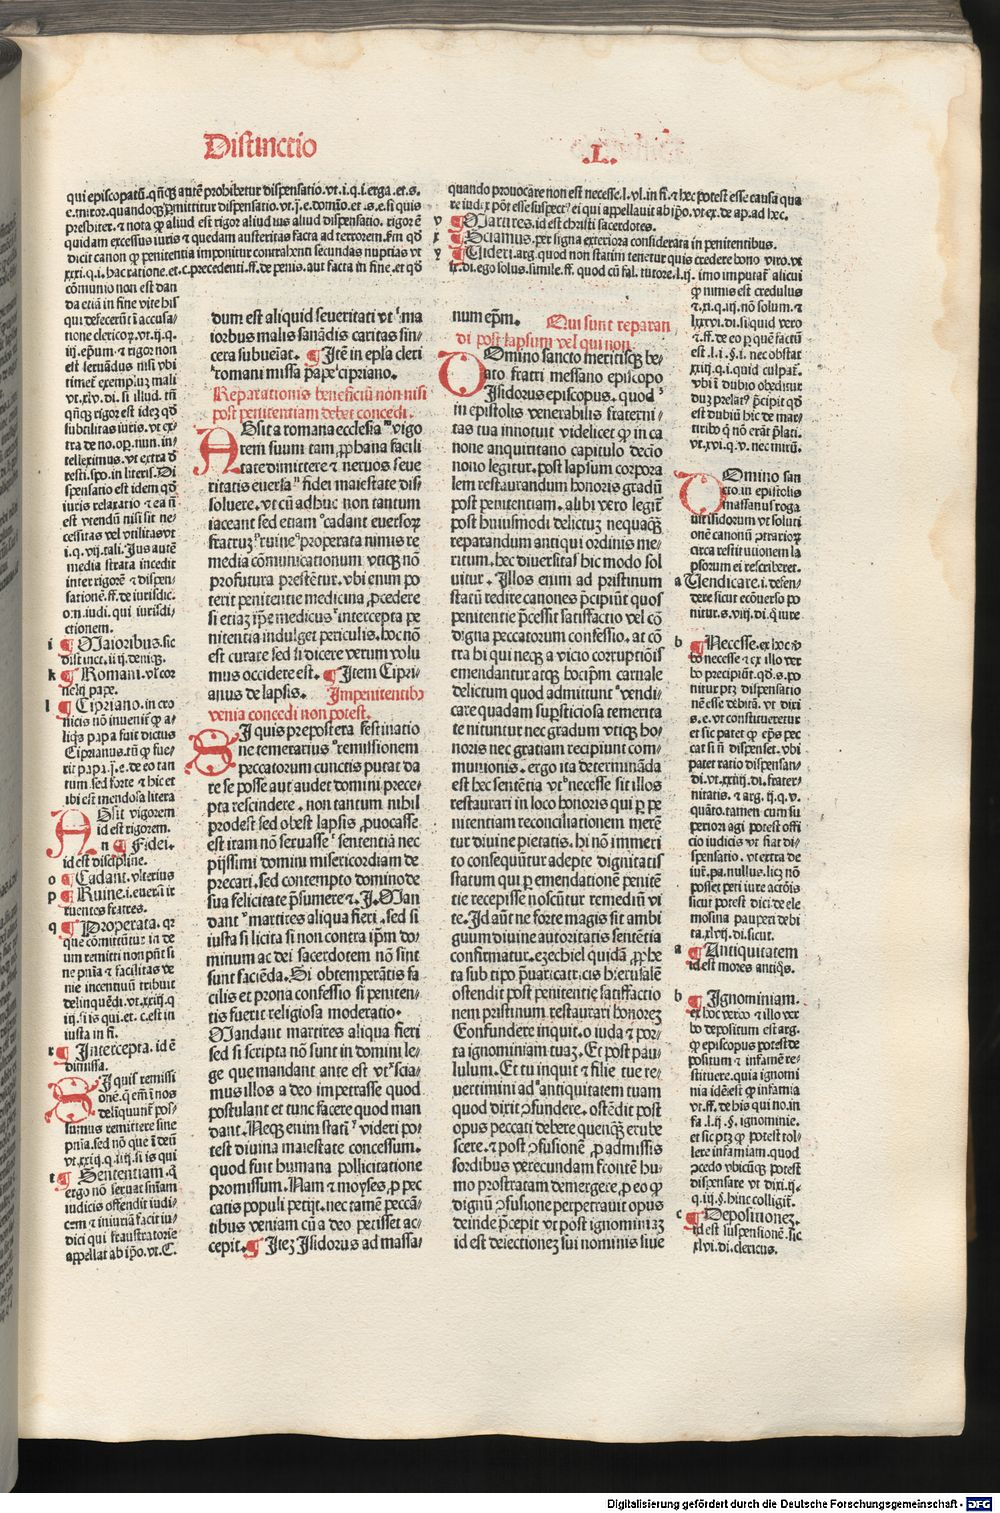 Distinctio .L.
qui episcopatū. qn̄qꝫ autē prohibetur dispensatio. vt. i. q. i. erga. et. s.
e. miror. quandoqꝫ ꝑmittitur dispensatio. vt. j. e. domīo. et .s. e. si quis
presbiter. ⁊ nota ꝙ aliud est rigor aliud ius aliud dispensatio. rigor ē
quidam excessus iuris ⁊ quedam austeritas facta ad terrorem. ẜm qd̄
dicit canon ꝙ penitentia imponitur contrahenti secundas nuptias vt
xxxi. q. i. hac ratione. et. c. precedenti. ff. de penis. aut facta in fine. et qd̄
cōmunio non est dan
da etiā in fine vite his
qui defecerūt ī accusa/
tione clericoꝝ. vt. ij. q.
iij. epūm. ⁊ rigor non
est seruādus nisi vbi
timet᷑ exempluꝫ mali
vt. xlv. di. si illud. tn̄
qn̄qꝫ rigor est ideꝫ qd̄
subtilitas iuris. vt ex/
tra de no. op. nun. in/
telleximus. vt extra d̄
resti. spo. in literis. Di
spensatio est idem qd̄
iuris relaxatio ⁊ ea n̄
est vtendū nisi sit ne/
cessitas vel vtilitas vt
i. q. vij. tali. Jus autē
media strata incedit
inter rigorē ⁊ dispen/
sationē. ff. de iurisdic.
o. n. iudi. qui iurisdi/
ctionem.
i ¶ Maioribus. sic
distinct. iiij. deniqꝫ.
k ¶ Romani. vl̓ cor
nelij pape.
l ¶ Cipriano. in cro
nicis nō inuenit᷑ ꝙ a/
liqꝫ papa fuit dictus
Ciprianus. tn̄ ꝙ fue/
rit papa. j. e. de eo tan
tum. sed forte ⁊ hic et
ibi est mendosa litera
ABsit vigorem
id est rigorem.
n ¶ Fidei.
id est discipline.
o ¶ Cadant. vlterius
p ¶ Ruine. i. euersū ir
ruentes fratres.
q ¶ Properata. qr
que cōmittūtur in de
um remitti non pn̄t si
ne pn̄ia ⁊ facilitas ve
nie incentiuū tribuit
delinquēdi. vt. xxiij. q
iiij. si is qui. et. c. est in
iusta in fi.
r ¶ Intercepta. id ē
dimissa.
SI quis remissi
onē. q̄ em̄ ī nos
deliquunt᷑ pos/
sumus remittere sine
pn̄ia. sed nō que ī deū
vt. xxiij. q. iiij. si is qui
t ¶ Sententiam. q̄
ergo nō seruat sn̄iam
iudicis offendit iudi/
cem ⁊ iniuriā facit iu/
dici qui frustratorie
appellat ab ip̄o. vt. C.
dum est aliquid seueritati vt ma
ioribus malis sanādis caritas sin/
cera subueiat. ¶ Itē in epl̄a cleri
romani missa pape cipriano.
Reparationis beneficiū non nisi
post penitentiam debet concedi.
ABsit a romana ecclesia vigo
rem suum tam ꝓphana facili
tate dimittere ⁊ neruos seue
ritatis euersa fidei maiestate dis/
soluere. vt cū adhuc non tantum
iaceant sed etiam cadant euersoꝝ
fratruꝫ ruine properata nimis re
media cōmunicationum vtiqꝫ nō
profutura prestētur. vbi enim po
terit penitentie medicina ꝓcedere
si etiaꝫ ip̄e medicus intercepta pe
nitentia indulget periculis. hoc nō
est curare sed si dicere verum volu
mus occidere est. ¶ Item Cipri/
anus de lapsis. Impenitentibꝫ
venia concedi non potest.
SI quis prepostera festinatio
ne temerarius remissionem
peccatorum cunctis putat da
re se posse aut audet domini prece/
pta rescindere. non tantum nihil
prodest sed obest lapsis ꝓuocasse
est iram nō seruasse sententiā nec
pijssimi domini misericordiam de
precari. sed contempto domino de
sua felicitate p̄sumere ⁊. J. Man
dant martires aliqua fieri. sed si
iusta si licita si non contra ip̄m do/
minum ac dei sacerdotem nō sint
sunt faciēda. Si obtemperātis fa
cilis et prona confessio si peniten/
tis fuerit religiosa moderatio.
Mandant martires aliqua fieri
sed si scripta nō sunt in domini le/
ge que mandant ante est vt scia/
mus illos a deo impetrasse quod
postulant et tunc facere quod man
dant. Neqꝫ enim stati videri po/
test diuina maiestate concessum.
quod sunt humana pollicitatione
promissum. Nam ⁊ moyses ꝓ pec
catis populi petijt. nec tamē peccā/
tibus veniam cū a deo petisset ac/
cepit. ¶ Iteꝫ Isidorus ad massa/
quando prouocare non est necesse. l. vl. in ff. ⁊ hec potest esse causa qua
re iudex pōt esse suspectꝰ ei qui appellauit ab ip̄o. vt ex. de ap. ad hec.
v ¶ Martires. id est christi sacerdotes.
x ¶ Sciamus. per signa exteriora considerata in penitentibus.
y ¶ Uideri. arg. quod non statim tenetur quis credere bono viro. vt
ix. di. ego solus. simile. ff. quod cū fal. tutore. l. ij. imo imputat᷑ alicui
ꝙ nimis est credulus
⁊. xi. q. iij. nō solum. ⁊
lxxxvi. di. si quid vero
⁊. ff. de eo ꝑ quē factū
est. l. i. §. i. nec obstat
xxiij. q. i. quid culpat᷑.
vbi ī dubio obeditur
duꝫ prelatꝰ p̄cipit qd̄
est dubiū hic de mar/
tiribꝰ q̄ nō erāt p̄lati.
vt. xvi. q. v. nec mirū.
num ep̄m. Qui sunt reparan
di post lapsum vel qui non.
DOmino sancto meritisqꝫ be/
ato fratri messano episcopo
Isidorus episcopus. quod
in epistolis venerabilis fraterni/
tas tua innotuit videlicet ꝙ in ca
none anquiritano capitulo decio
nono legitur. post lapsum corpora
lem restaurandum honoris gradū
post penitentiam. alibi vero legit᷑
post huiusmodi delictuꝫ nequaqꝫ
reparandum antiqui ordinis me/
ritum. hec diuersitas hic modo sol
uitur. Illos enim ad pristinum
statū redire canones p̄cipiūt quos
penitentie p̄cessit satisfactio vel cō
digna peccatorum confessio. at cō
tra hi qui neqꝫ a vicio corruptiōis
emendantur atqꝫ hoc ip̄m carnale
delictum quod admittunt vendi/
care quadam supsticiosa temerita
te nituntur nec gradum vtiqꝫ ho/
noris nec gratiam recipiunt com/
munionis. ergo ita determinā̄da
est hec sentētia vt necesse sit illos
restaurari in loco honoris qui ꝑ pe
nitentiam reconciliationem merē/
tur diuine pietatis. hi nō immeri
to consequūtur adepte dignitatis
statum qui ꝑ emendationē penitē
tie recepisse noscūtur remediū vi
te. Id aūt ne forte magis sit ambi
guum diuine autoritatis sentētia
confirmatur. ezechiel quidā ꝓphe
ta sub tipo p̄uaricatīcis hierusalē
ostendit post penitentie satisfactio
nem pristinum restaurari honoreꝫ
Confundere inquit. o iuda ⁊ por/
ta ignominiam tuaꝫ. Et post pau/
lulum. Et tu inquit ⁊ filie tue re/
uertimini ad antiquitatem tuam
quod dixit ↄfundere. ostēdit post
opus peccati debere quenqꝫ erube
scere. ⁊ post ↄfusionē ꝓ admissis
sordibus verecundam frontē hu/
mo prostratam demergere. ꝑ eo ꝙ
dignū ↄfusione perpetrauit opus
deinde p̄cepit vt post ignominiaꝫ
id est deiectionez sui nominis siue
DOmino san
cto. in epistolis
massanus roga
uit isidorum vt soluti
onē canonū ↄtrarioꝝ
circa restitutionem la
psorum ei rescriberet.
a Uendicare. i. defen/
dere sicut ecōuerso po
nitur. s. viij. di. q̄ iure
b ¶ Necesse. ex hoc v̓
bo necesse ⁊ ex illo ver
bo precipiūt. qd̄. s. po
nitur ptꝫ dispensatio
nē esse debitā. vt dixi
s. e. vt constitueretur
et sic patet ꝙ ep̄s pec
cat si nō dispenset. vbi
patet ratio dispensan/
di. vt. xxiij. di. frater/
nitatis. ⁊ arg. ij. q. v.
quāto. tamen cum su
periori agi potest offi
cio iudicis vt fiat di/
spensatio. vt extra de
iur. pa. nullus. licꝫ nō
posset peti iure actōis
sicut potest dici de ele
mosina pauperi debi
ta. xlvij. di. sicut.
a ¶ Antiquitatem
id est mores antiq̄s.
b ¶ Ignominiam.
ex hoc verbo ⁊ illo ver
bo depositum est arg.
ꝙ episcopus potest de
positum ⁊ infamē re/
stituere. quia ignomi
nia idē est ꝙ infamia
vt. ff. de his qui no. in
fa. l. ij. §. ignominie.
et sic ptꝫ ꝙ potest tol/
lere infamiam. quod
ↄcedo vbicūqꝫ potest
dispensare vt dixi. ij.
q. iij. §. hinc colligit᷑.
c ¶ Depositioneꝫ.
id est suspensionē. sic
xlvi. di. clericus.
Digitalisierung gefördert durch die Deutsche Forschungsgemeinschaft - DFG